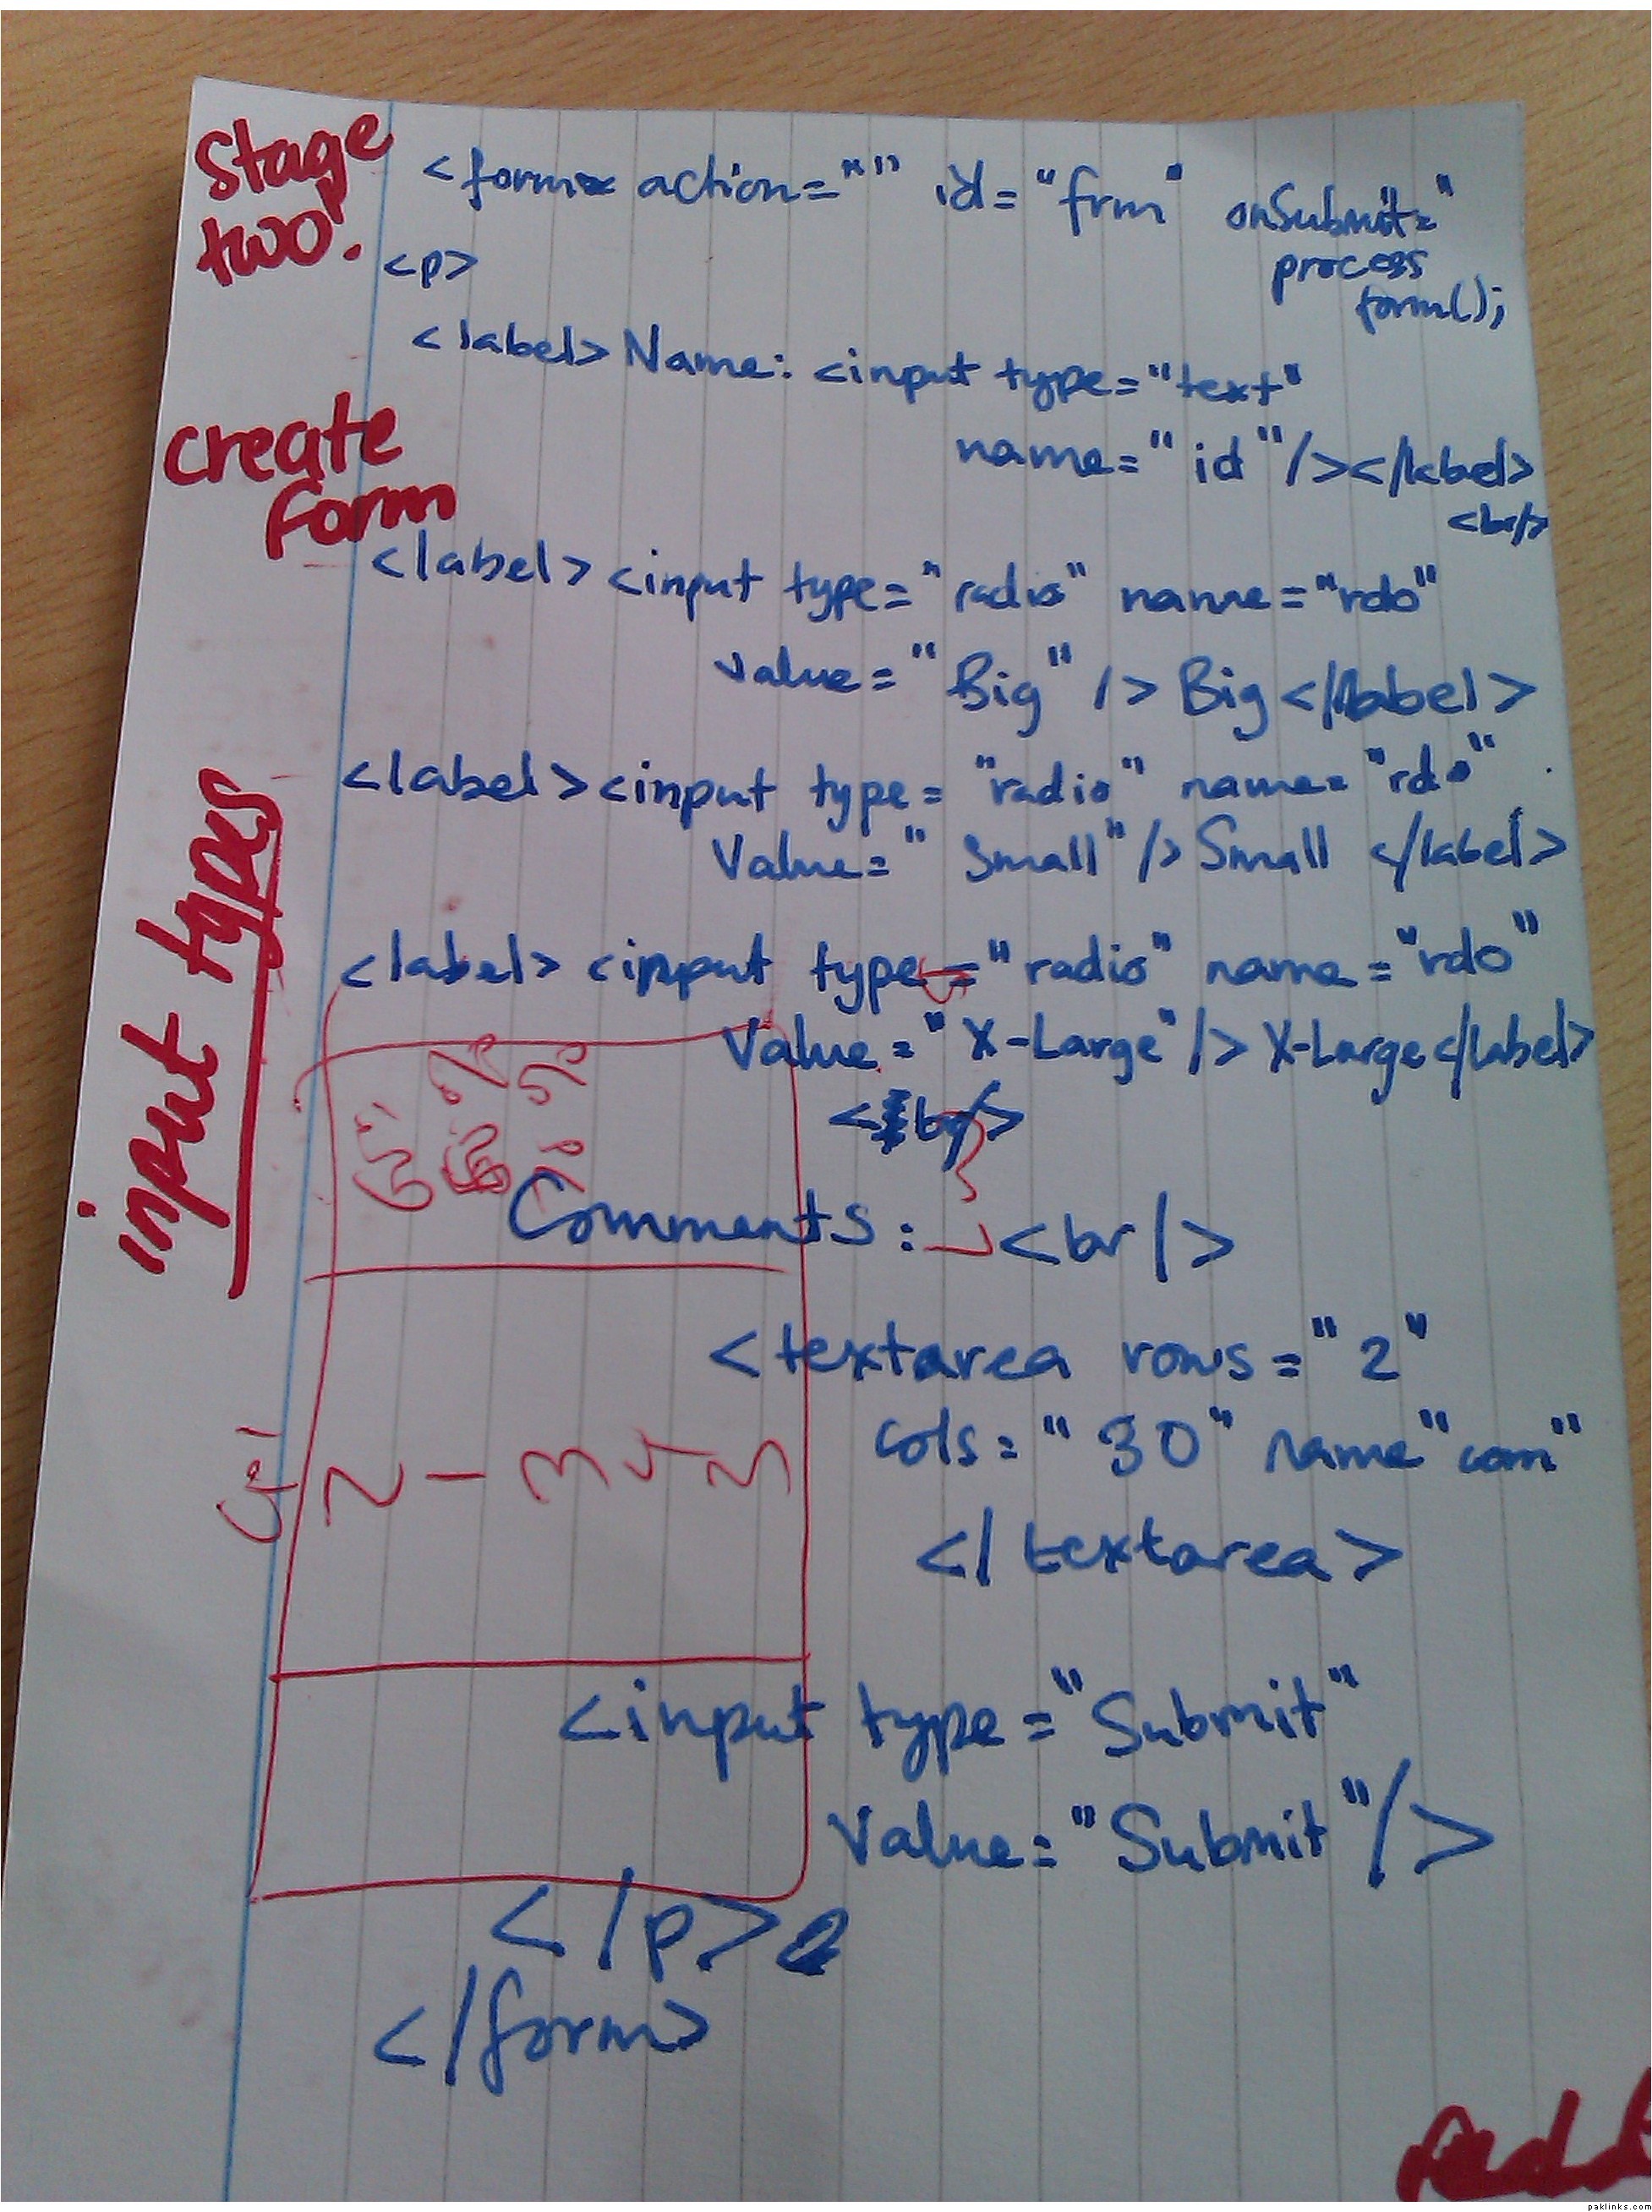 Stage
two.
<form action="" id="frm" onSubmit="
process
form();
<p>
<label> Name: <input type="text"
name="id"/></label>
<br/>
create
form
<label><input type="radio" name="rdo"
value="Big" /> Big</label>
<label><input type="radio" name="rdo"
Value="Small"/> Small </label>
input types
<label> <input type="radio" name="rdo"
Value="X-Large"/> X-Large</label>
<br/>
Comments: <br/>
<textarea rows="2"
cols="30" name"com"
</textarea>
<input type="Submit"
Value="Submit"/>
</p>
</form>
paklinks.com